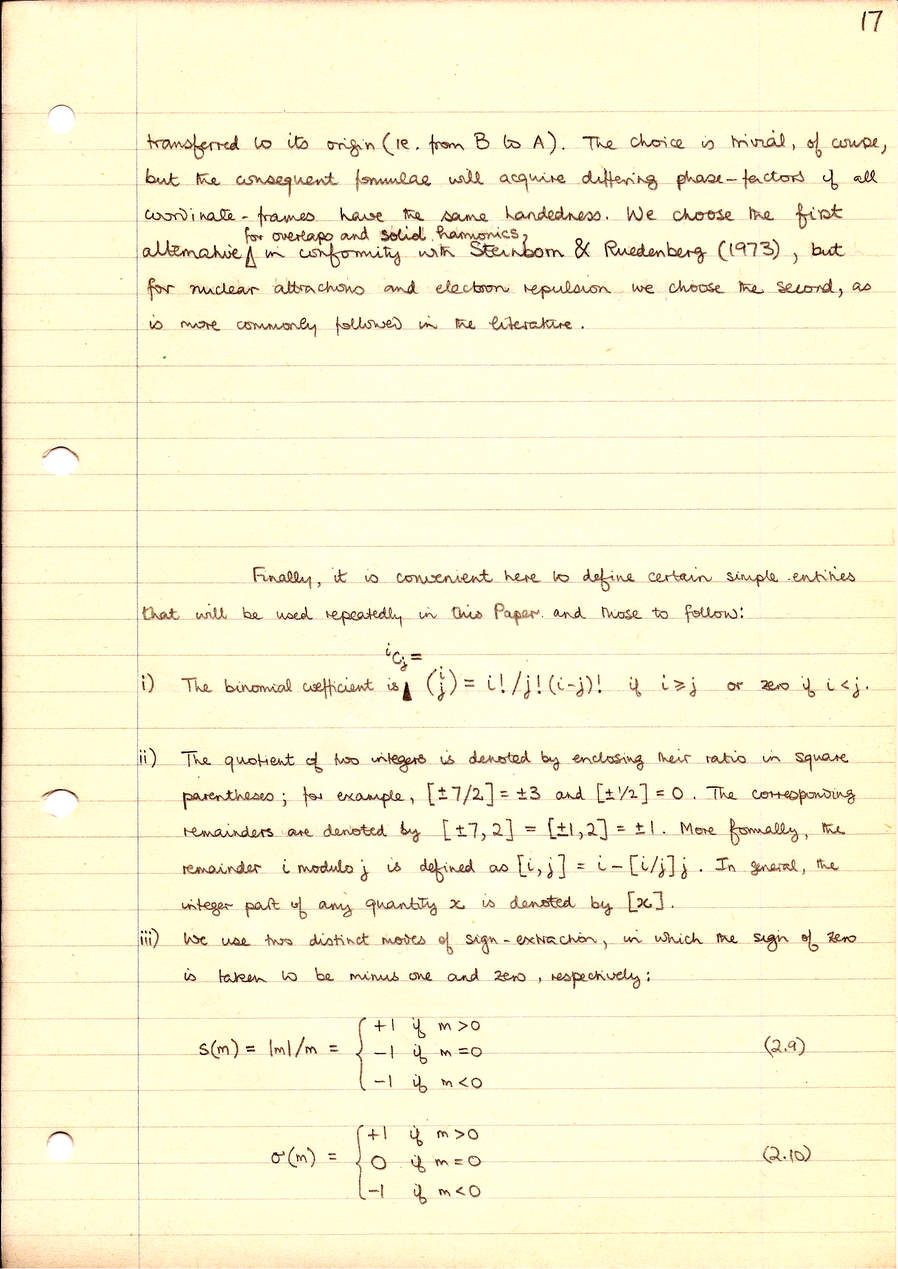 17
transferred to its origin (ie. from B to A). The choice is trivial, of course,
but the consequent formulae will acquire differing phase-factors if all
coordinate-frames have the same handedness. We choose the first
for overlaps and solid harmonics,
alternative in conformity with Steinborn & Ruedenberg (1973), but
for nuclear attractions and electron repulsion we choose the second, as
is more commonly followed in the literature.
Finally, it is convenient here to define certain simple entities
that will be used repeatedly in this Paper and those to follow:
ⁱCⱼ =
i) The binomial coefficient is (i j) = i!/j!(i-j)! if i ≥ j or zero if i < j.
ii) The quotient of two integers is denoted by enclosing their ratio in square
parentheses; for example, [±7/2] = ±3 and [±1/2] = 0. The corresponding
remainders are denoted by [±7,2] = [±1,2] = ±1. More formally, the
remainder i modulo j is defined as [i,j] = i - [i/j]j. In general, the
integer part of any quantity x is denoted by [x].
iii) We use two distinct modes of sign-extraction, in which the sign of zero
is taken to be minus one and zero, respectively:
+1 if m > 0
s(m) = |m|/m = { -1 if m = 0 (2.9)
-1 if m < 0
+1 if m > 0
σ(m) = { 0 if m = 0 (2.10)
-1 if m < 0